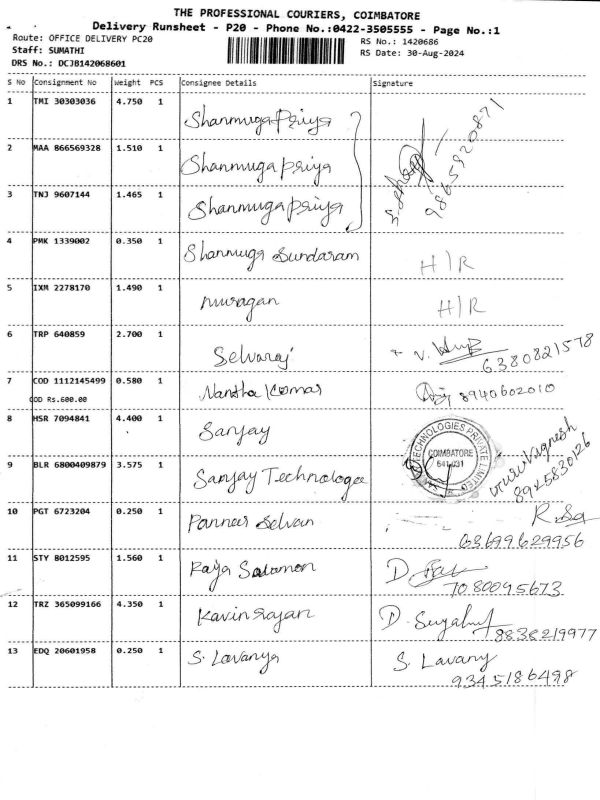 THE PROFESSIONAL COURIERS, COIMBATORE
Delivery Runsheet - P20 - Phone No.:0422-3505555 - Page No.:1
Route: OFFICE DELIVERY PC20 RS No.: 1420686
Staff: SUMATHI RS Date: 30-Aug-2024
DRS No.: DCJB142068601
S No Consignment No Weight PCS Consignee Details Signature
1 TMI 30303036 4.750 1 Shanmuga Priya
2 MAA 866569328 1.510 1 Shanmuga Priya 9865920871
3 TNJ 9607144 1.465 1 Shanmuga Priya
4 PMK 1339002 0.350 1 Shanmuga Sundaram H/R
5 IXM 2278170 1.490 1 murugan H/R
6 TRP 640859 2.700 1 Selvaraj 6380821578
7 COD 1112145499 0.580 1 Nantha Kumar 8940602010
COD Rs.600.00
8 HSR 7094841 4.400 1 Sanjay
TECHNOLOGIES PRIVATE LIMITED
COIMBATORE
641 031
9 BLR 6800409879 3.575 1 Sanjay Technologee Vignesh
8925830126
10 PGT 6723204 0.250 1 Panneer Selvan
63699629956
11 STY 8012595 1.560 1 Raja Solomon D.
7080095673
12 TRZ 365099166 4.350 1 Kavin rajan D.
9836219977
13 EDQ 20601958 0.250 1 S. Lavanya S. Lavany
9345186498